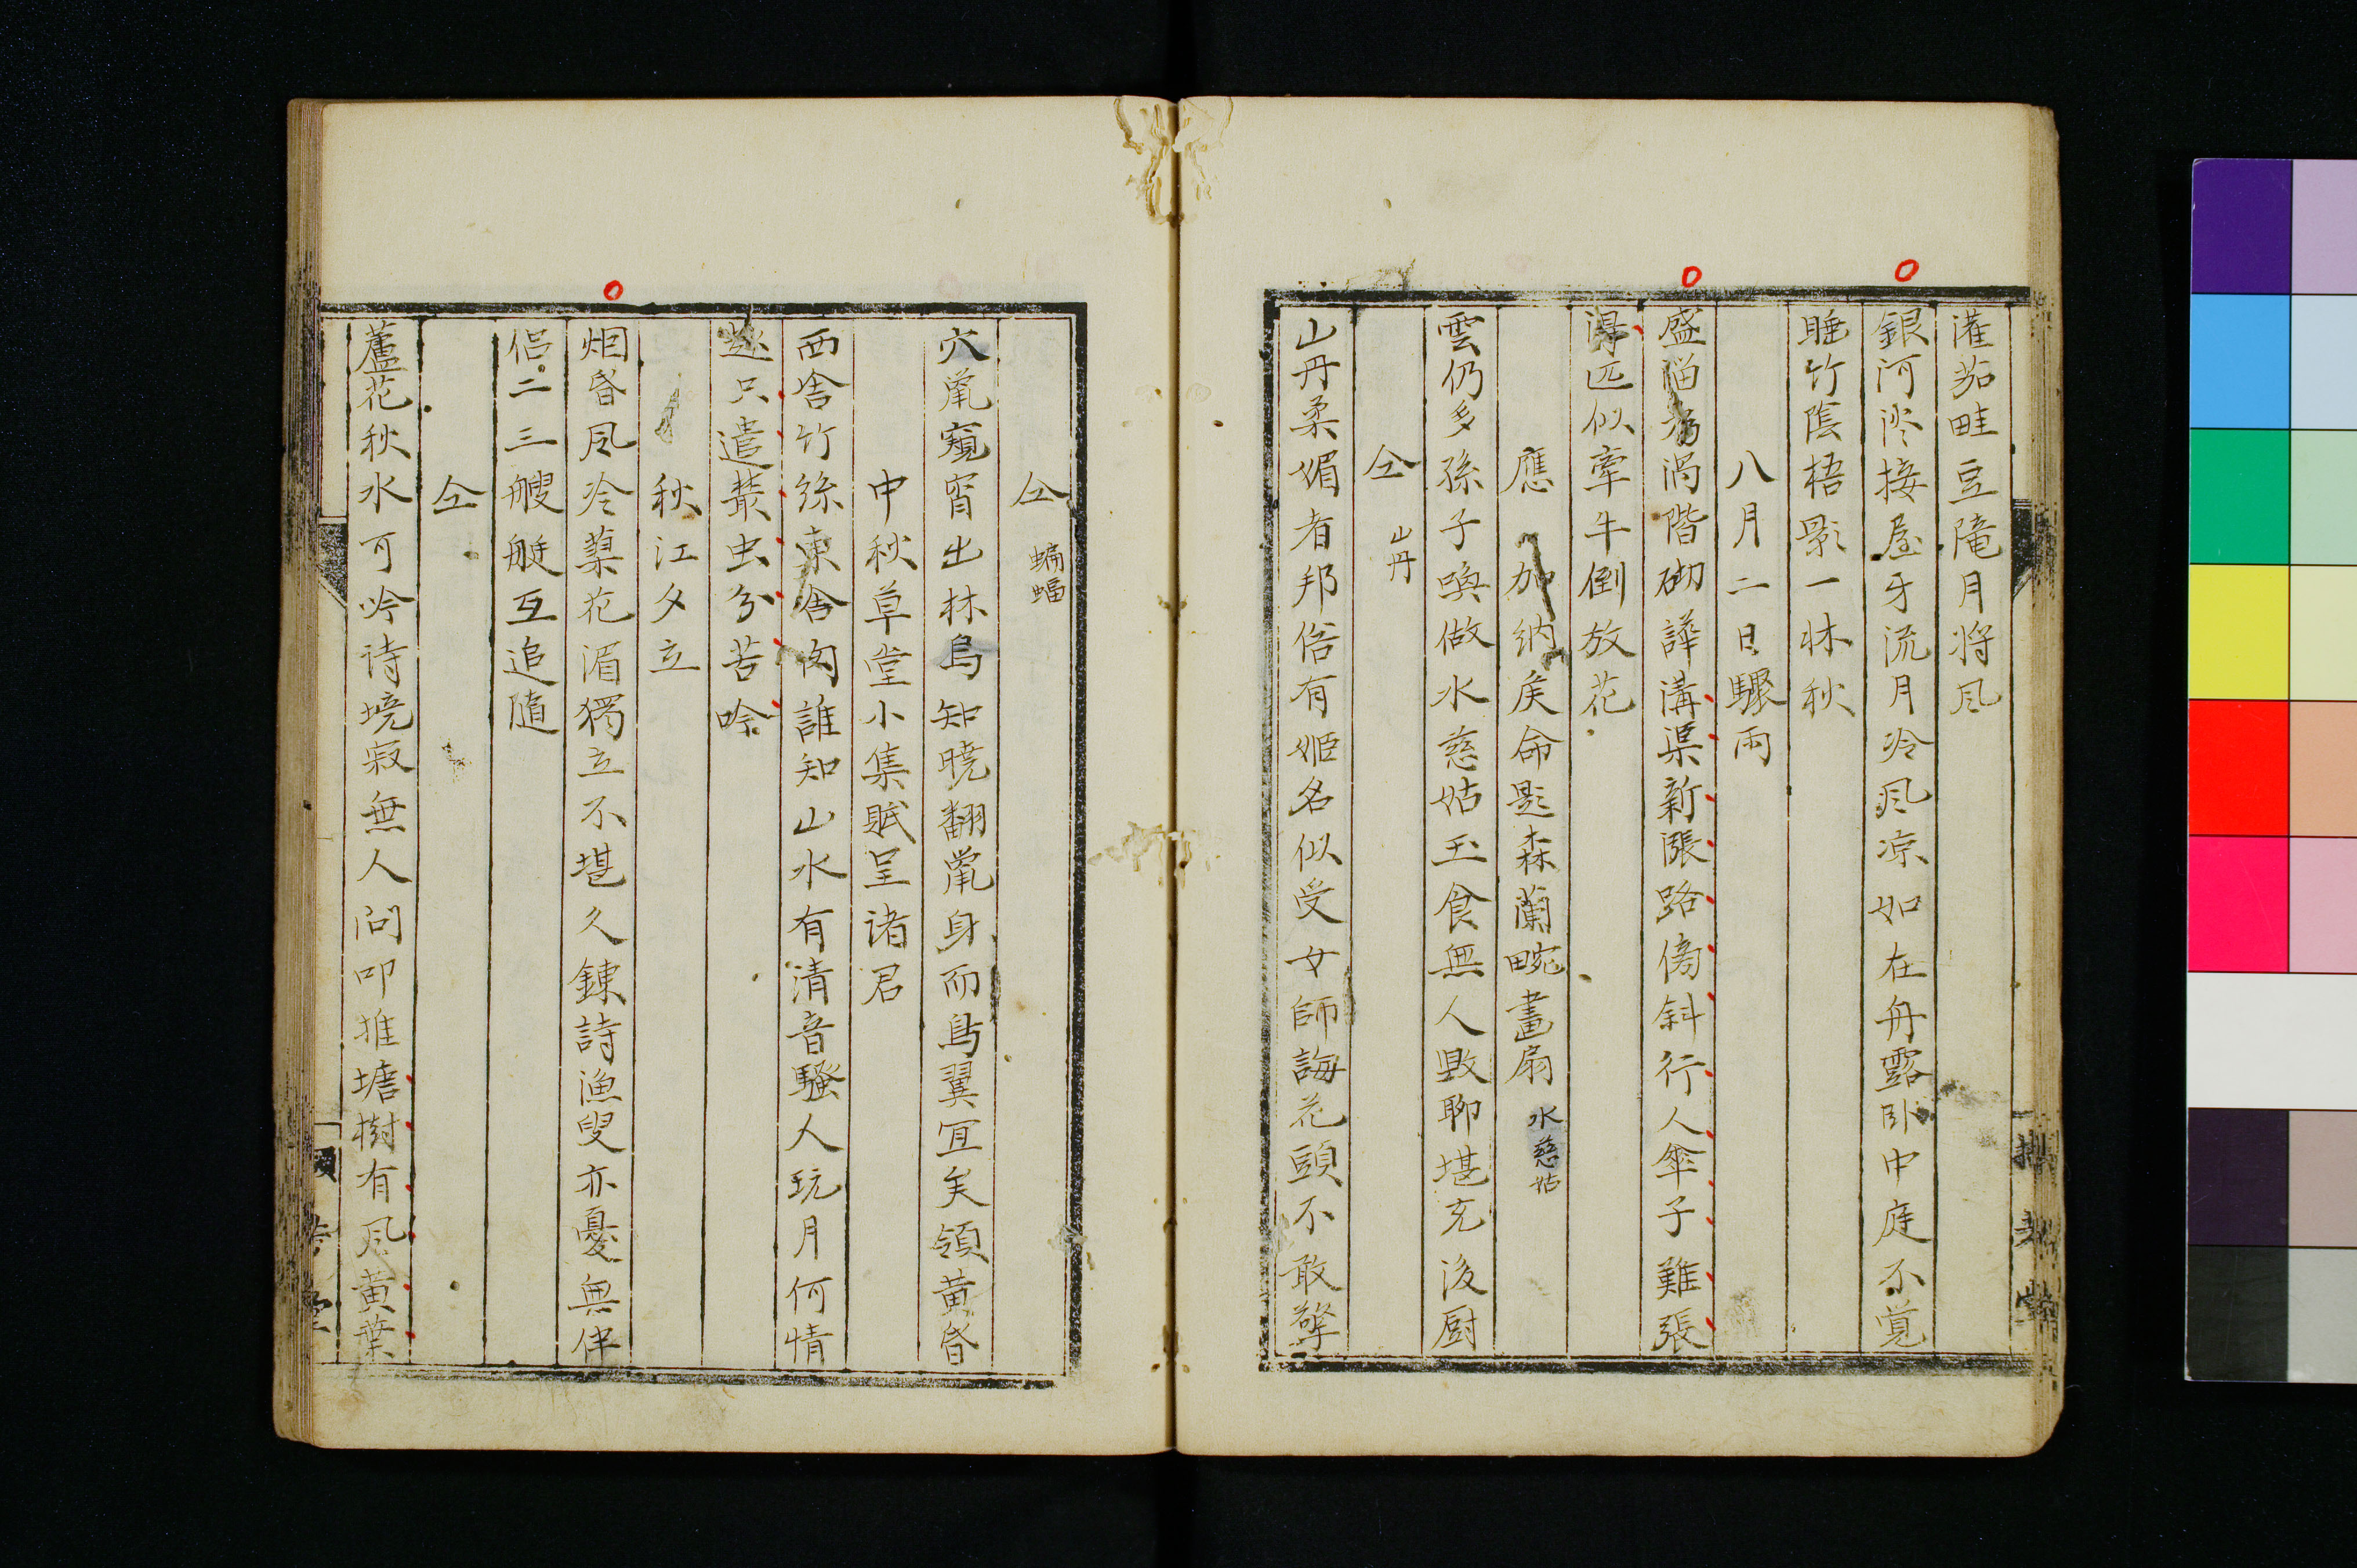 灌茄畦豆隴月將風
銀河滲接屋牙流月冷風凉如在舟露卧中庭不覚
睡竹陰梧影一牀秋
八月二日驟雨
盛溜為渦階砌譁溝渠新漲路傍斜行人傘子難張
得匹似牽牛倒放花
應加納矦命題森蘭畹畫扇 水慈姑
雲仍多孫子喚做水慈姑玉食無人㪘聊堪充後厨
仝 山丹
山丹柔媚者邦俗有姬名似受女師誨花頭不敢擎
仝 蝙蝠
穴䑕窺宵出林烏知曉翻䑕身而鳥翼宜矣領黄昏
中秋草堂小集賦呈诸君
西舎竹絲東舎肉誰知山水有清音騷人玩月何情
趣只遣叢虫分苦唫
秋江夕立
烟昏风冷蘋花湄獨立不堪久錬詩漁叟亦憂無伴
侣二三艘艇互追隨
仝
蘆花秋水可吟诗境寂無人问叩推塘樹有风黄葉